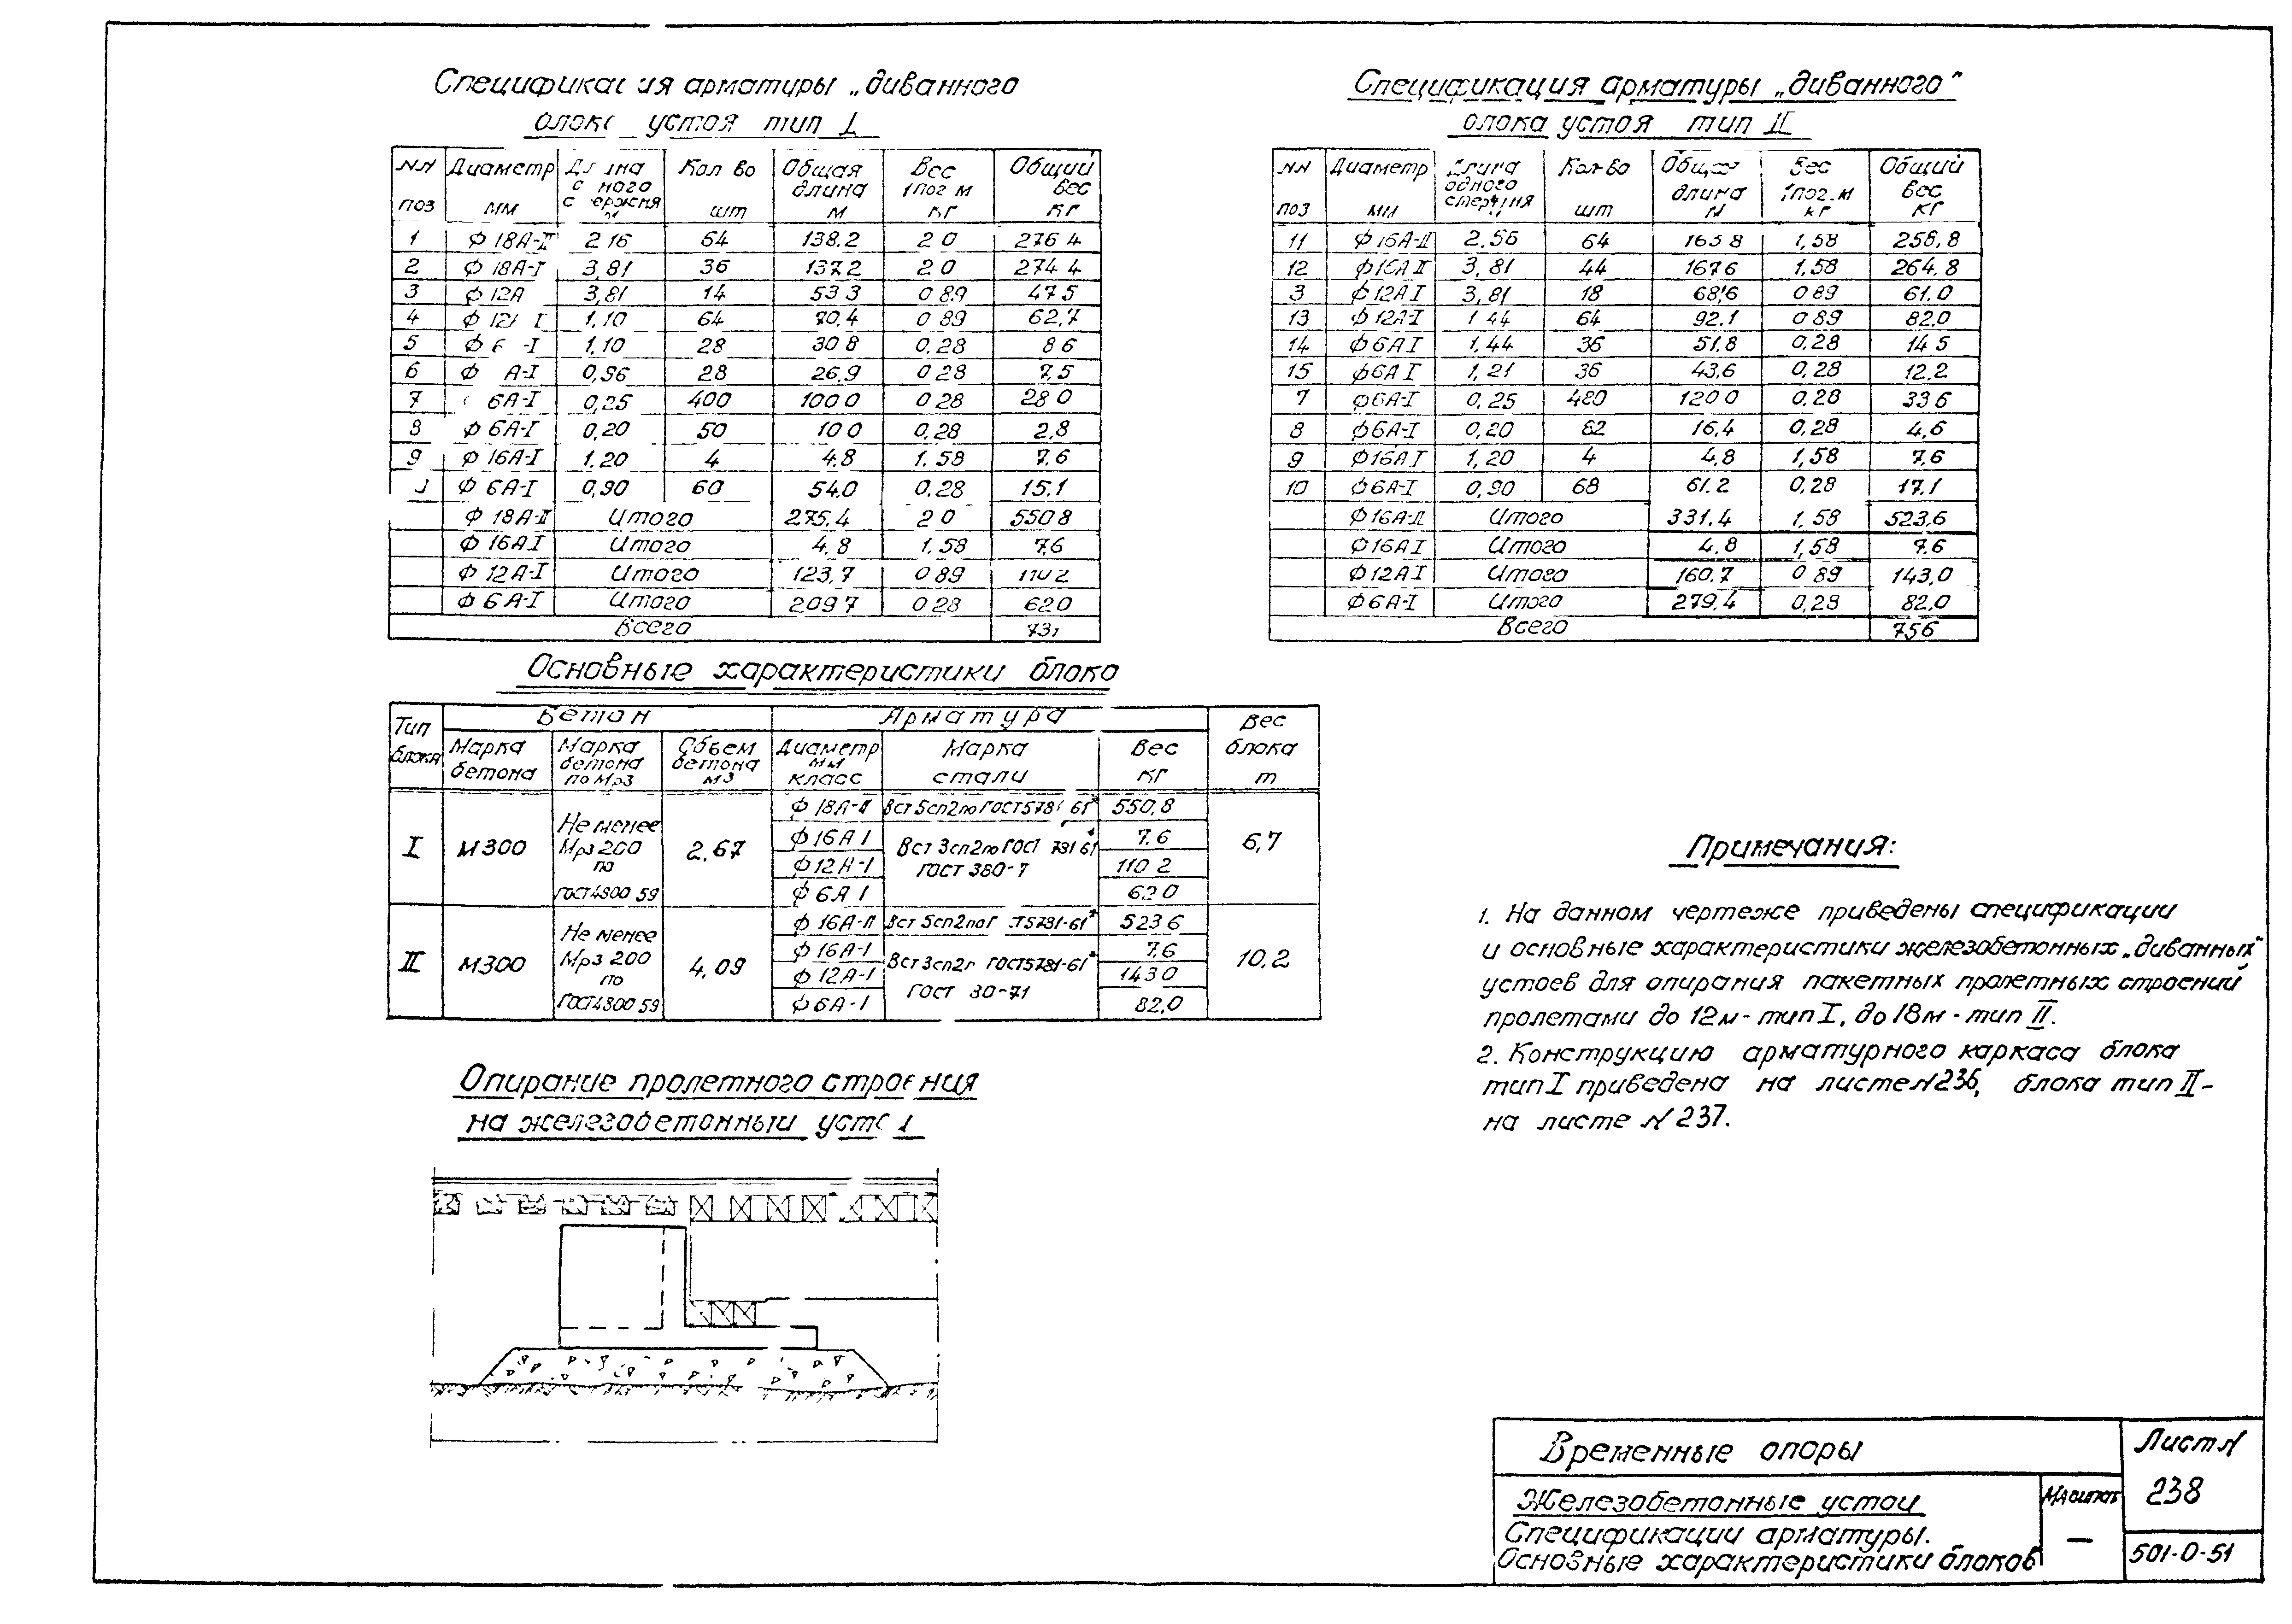 Спецификация арматуры „диванного
блока устоя тип I
NN поз | Диаметр мм | Длина одного стержня м | Кол во шт | Общая длина м | Вес 1 пог м кг | Общий вес кг
1 | Ф 18А-II | 2 16 | 64 | 138.2 | 2 0 | 276 4
2 | Ф 18А-I | 3,81 | 36 | 137.2 | 2 0 | 274 4
3 | Ф 12А | 3,81 | 14 | 53 3 | 0 89 | 47 5
4 | Ф 12 I | 1,10 | 64 | 70,4 | 0 89 | 62,7
5 | Ф 6 -I | 1,10 | 28 | 30 8 | 0,28 | 8 6
6 | Ф А-I | 0,96 | 28 | 26,9 | 0 28 | 7,5
7 | 6А-I | 0,25 | 400 | 100 0 | 0 28 | 28 0
8 | Ф 6А-I | 0,20 | 50 | 10 0 | 0,28 | 2,8
9 | Ф 16А-I | 1,20 | 4 | 4,8 | 1,58 | 7,6
Ф 6А-I | 0,90 | 60 | 54,0 | 0,28 | 15,1
Ф 18А-II | Итого | 275,4 | 2 0 | 550 8
Ф 16А I | Итого | 4,8 | 1,58 | 7,6
Ф 12А-I | Итого | 123,7 | 0 89 | 110 2
Ф 6 А-I | Итого | 209 7 | 0 28 | 62 0
Всего | 731
Спецификация арматуры „диванного"
блока устоя тип II
NN поз | Диаметр мм | Длина одного стержня м | Кол-во шт | Общая длина м | Вес 1 пог. м кг | Общий вес кг
11 | Ф 16А-II | 2,56 | 64 | 163 8 | 1,58 | 258,8
12 | Ф16А II | 3,81 | 44 | 167 6 | 1,58 | 264,8
3 | Ф 12А I | 3,81 | 18 | 68,6 | 0 89 | 61,0
13 | Ф 12А-I | 1 44 | 64 | 92,1 | 0 89 | 82,0
14 | Ф 6А I | 1,44 | 36 | 51,8 | 0,28 | 14 5
15 | Ф6А I | 1,21 | 36 | 43,6 | 0,28 | 12,2
7 | Ф6А-I | 0,25 | 480 | 120 0 | 0,28 | 33 6
8 | Ф6А-I | 0,20 | 82 | 16,4 | 0,28 | 4,6
9 | Ф16А I | 1,20 | 4 | 4,8 | 1,58 | 7,6
10 | Ф6А-I | 0,90 | 68 | 61.2 | 0,28 | 17,1
Ф16А-II | Итого | 331,4 | 1,58 | 523,6
Ф16А I | Итого | 4,8 | 1,58 | 7,6
Ф12А I | Итого | 160,7 | 0 89 | 143,0
Ф6А-I | Итого | 279,4 | 0,28 | 82,0
Всего | 756
Основные характеристики блоко
Тип блока | Бетон | Арматура | Вес блока т
Марка бетона | Марка бетона по Мрз | Объем бетона м3 | Диаметр мм класс | Марка стали | Вес кг
I | М300 | Не менее Мрз 200 по ГОСТ4800 59 | 2,67 | Ф 18А-II | Вст 5сп2 по ГОСТ 5781 61* | 550,8 | 6,7
Ф 16А I | Вст 3сп2 по ГОСТ 781 61* | 7,6
Ф 12А-I | ГОСТ 380-7 | 110 2
Ф 6А I | 62 0
II | М300 | Не менее Мрз 200 по ГОСТ4800 59 | 4,09 | Ф 16А-II | Вст 5сп2 по Г СТ5781-61* | 523 6 | 10,2
Ф 16А-I | Вст 3сп2 ГОСТ5781-61* | 7,6
Ф 12А-I | ГОСТ 80-71 | 143 0
Ф 6А-I | 82,0
Опирание пролетного строения
на железобетонный уст
Примечания:
1. На данном чертеже приведены спецификации
и основные характеристики железобетонных „диванных"
устоев для опирания пакетных пролетных строений
пролетами до 12м - тип I, до 18м - тип II.
2. Конструкцию арматурного каркаса блока
тип I приведена на листе N 236, блока тип II -
на листе N 237.
Временные опоры
Лист N
238
Железобетонные устои
Масштаб
Спецификации арматуры.
—
Основные характеристики блоков
501-0-51